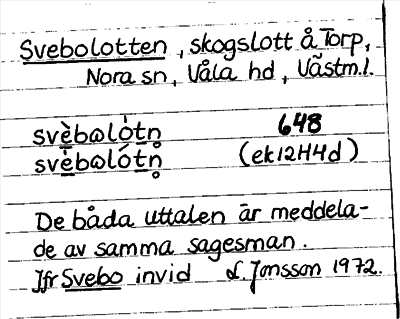 Svebolotten, skogslott å Torp,
Nora sn, Våla hd, Västm.l.
svèbωlòtn̥ 648
svèbωlótn̥ (ek12H4d)
De båda uttalen är meddela-
de av samma sagesman.
Jfr Svebo invid L. Jonsson 1972.